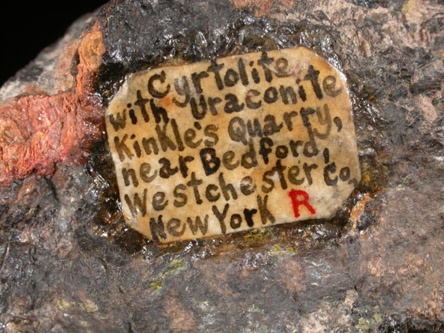 Cyrtolite
with Uraconite
Kinkle's Quarry,
near Bedford,
Westchester Co.
New York R